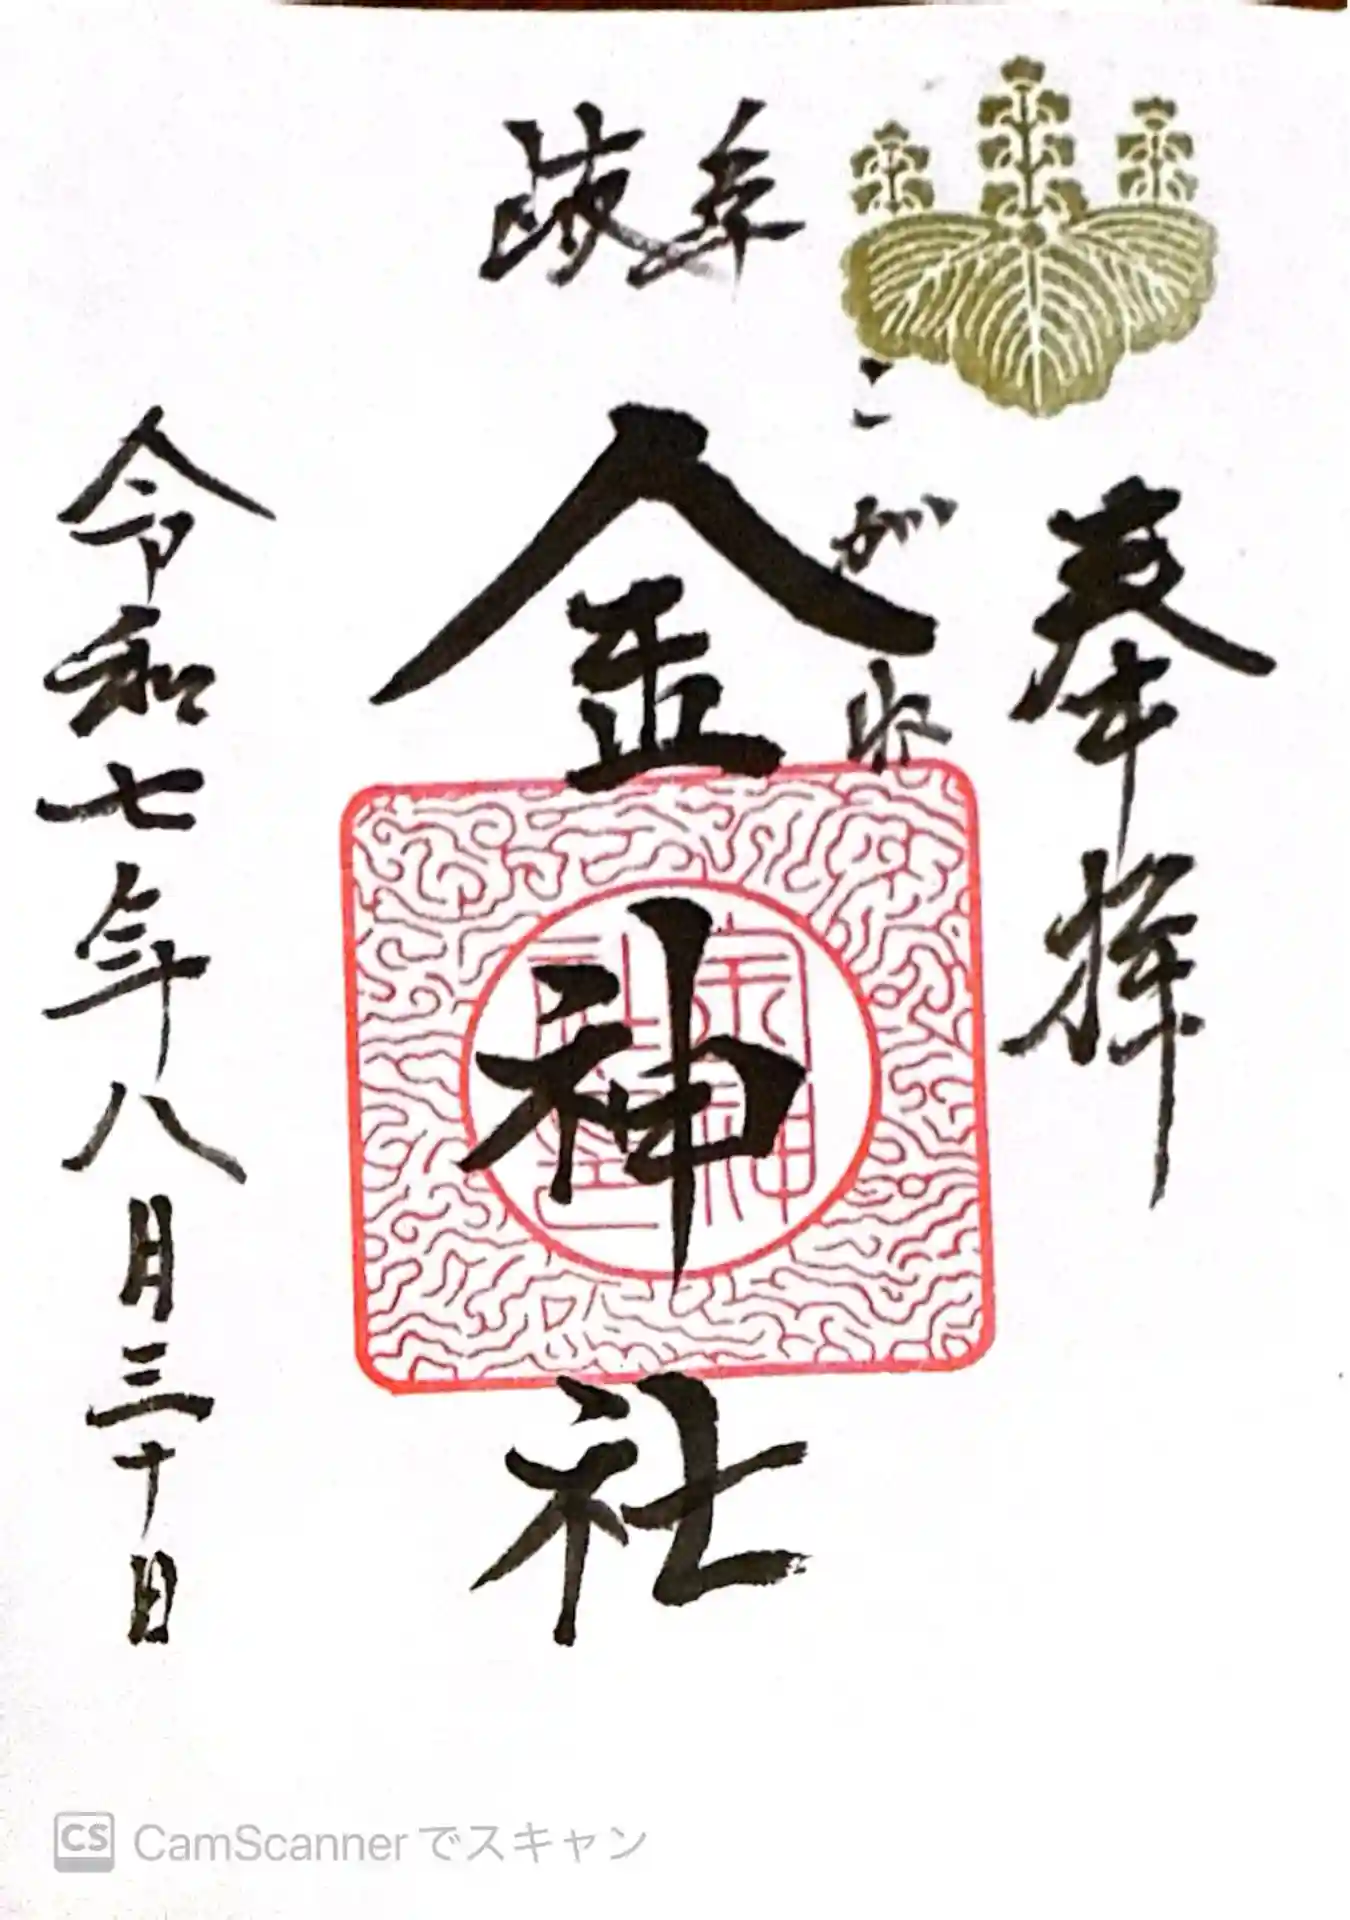 奉拝
こがね
金神社
令和七年八月三十日
CS CamScannerでスキャン